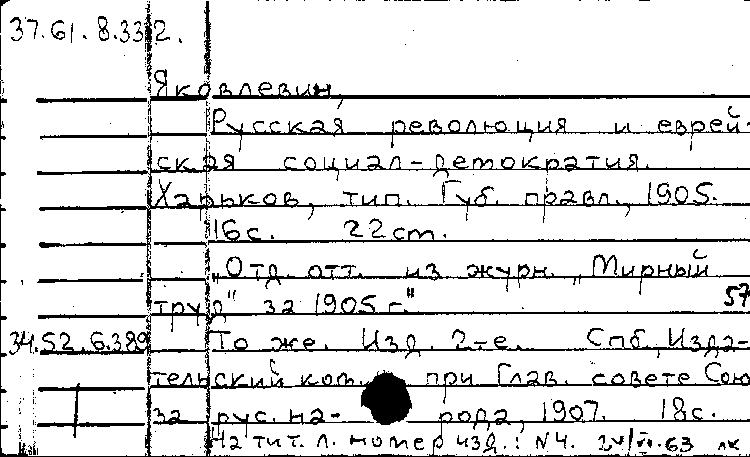 37.61.8.332.
Яковлевин,
Русская революция и еврей-
ская социал-демократия.
Харьков, тип. Губ. правл., 1905.
16с. 22 ст.
„Отд. отт. из журн. „Мирный
труд" за 1905 г."
57
34.52.6.389 То же. Изд. 2-е. Спб, Изда-
тельский ком. при Глав. совете Сою-
за рус. на- рода, 1907. 18с.
На тит. л. номер изд.: N4. 24/VI.63 лк